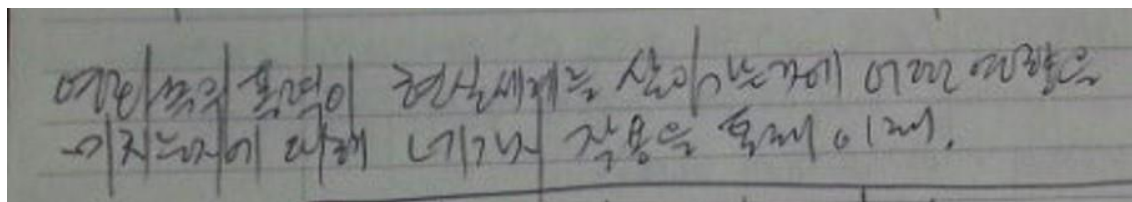 영화 속의 폭력이 현실세계를 살아가는 자에 어떤 영향을
미치는지에 대해 네가지 작용을 통해 이해.